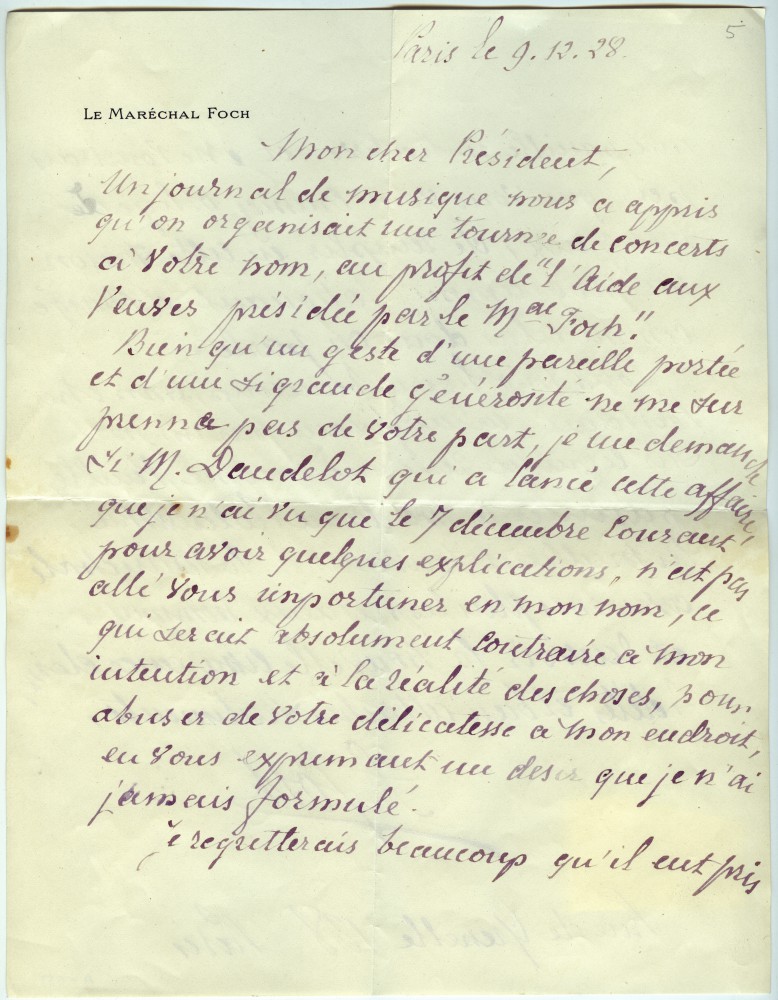 5
Paris le 9.12.28.
LE MARÉCHAL FOCH
Mon cher Président,
Un journal de musique nous a appris
qu'on organisait une tournée de concerts
à votre nom, au profit de "l'Aide aux
Veuves présidée par le Mal Foch."
Bien qu'un geste d'une pareille portée
et d'une si grande générosité ne me sur
prenne pas de votre part, je me demande
si M. Dandelot qui a lancé cette affaire,
que je n'ai vu que le 7 décembre courant
pour avoir quelques explications, n'est pas
allé vous importuner en mon nom, ce
qui serait absolument contraire à mon
intention et à la réalité des choses, pour
abuser de votre délicatesse à mon endroit,
en vous exprimant un desir que je n'ai
jamais formulé.
Je regretterais beaucoup qu'il eut pris